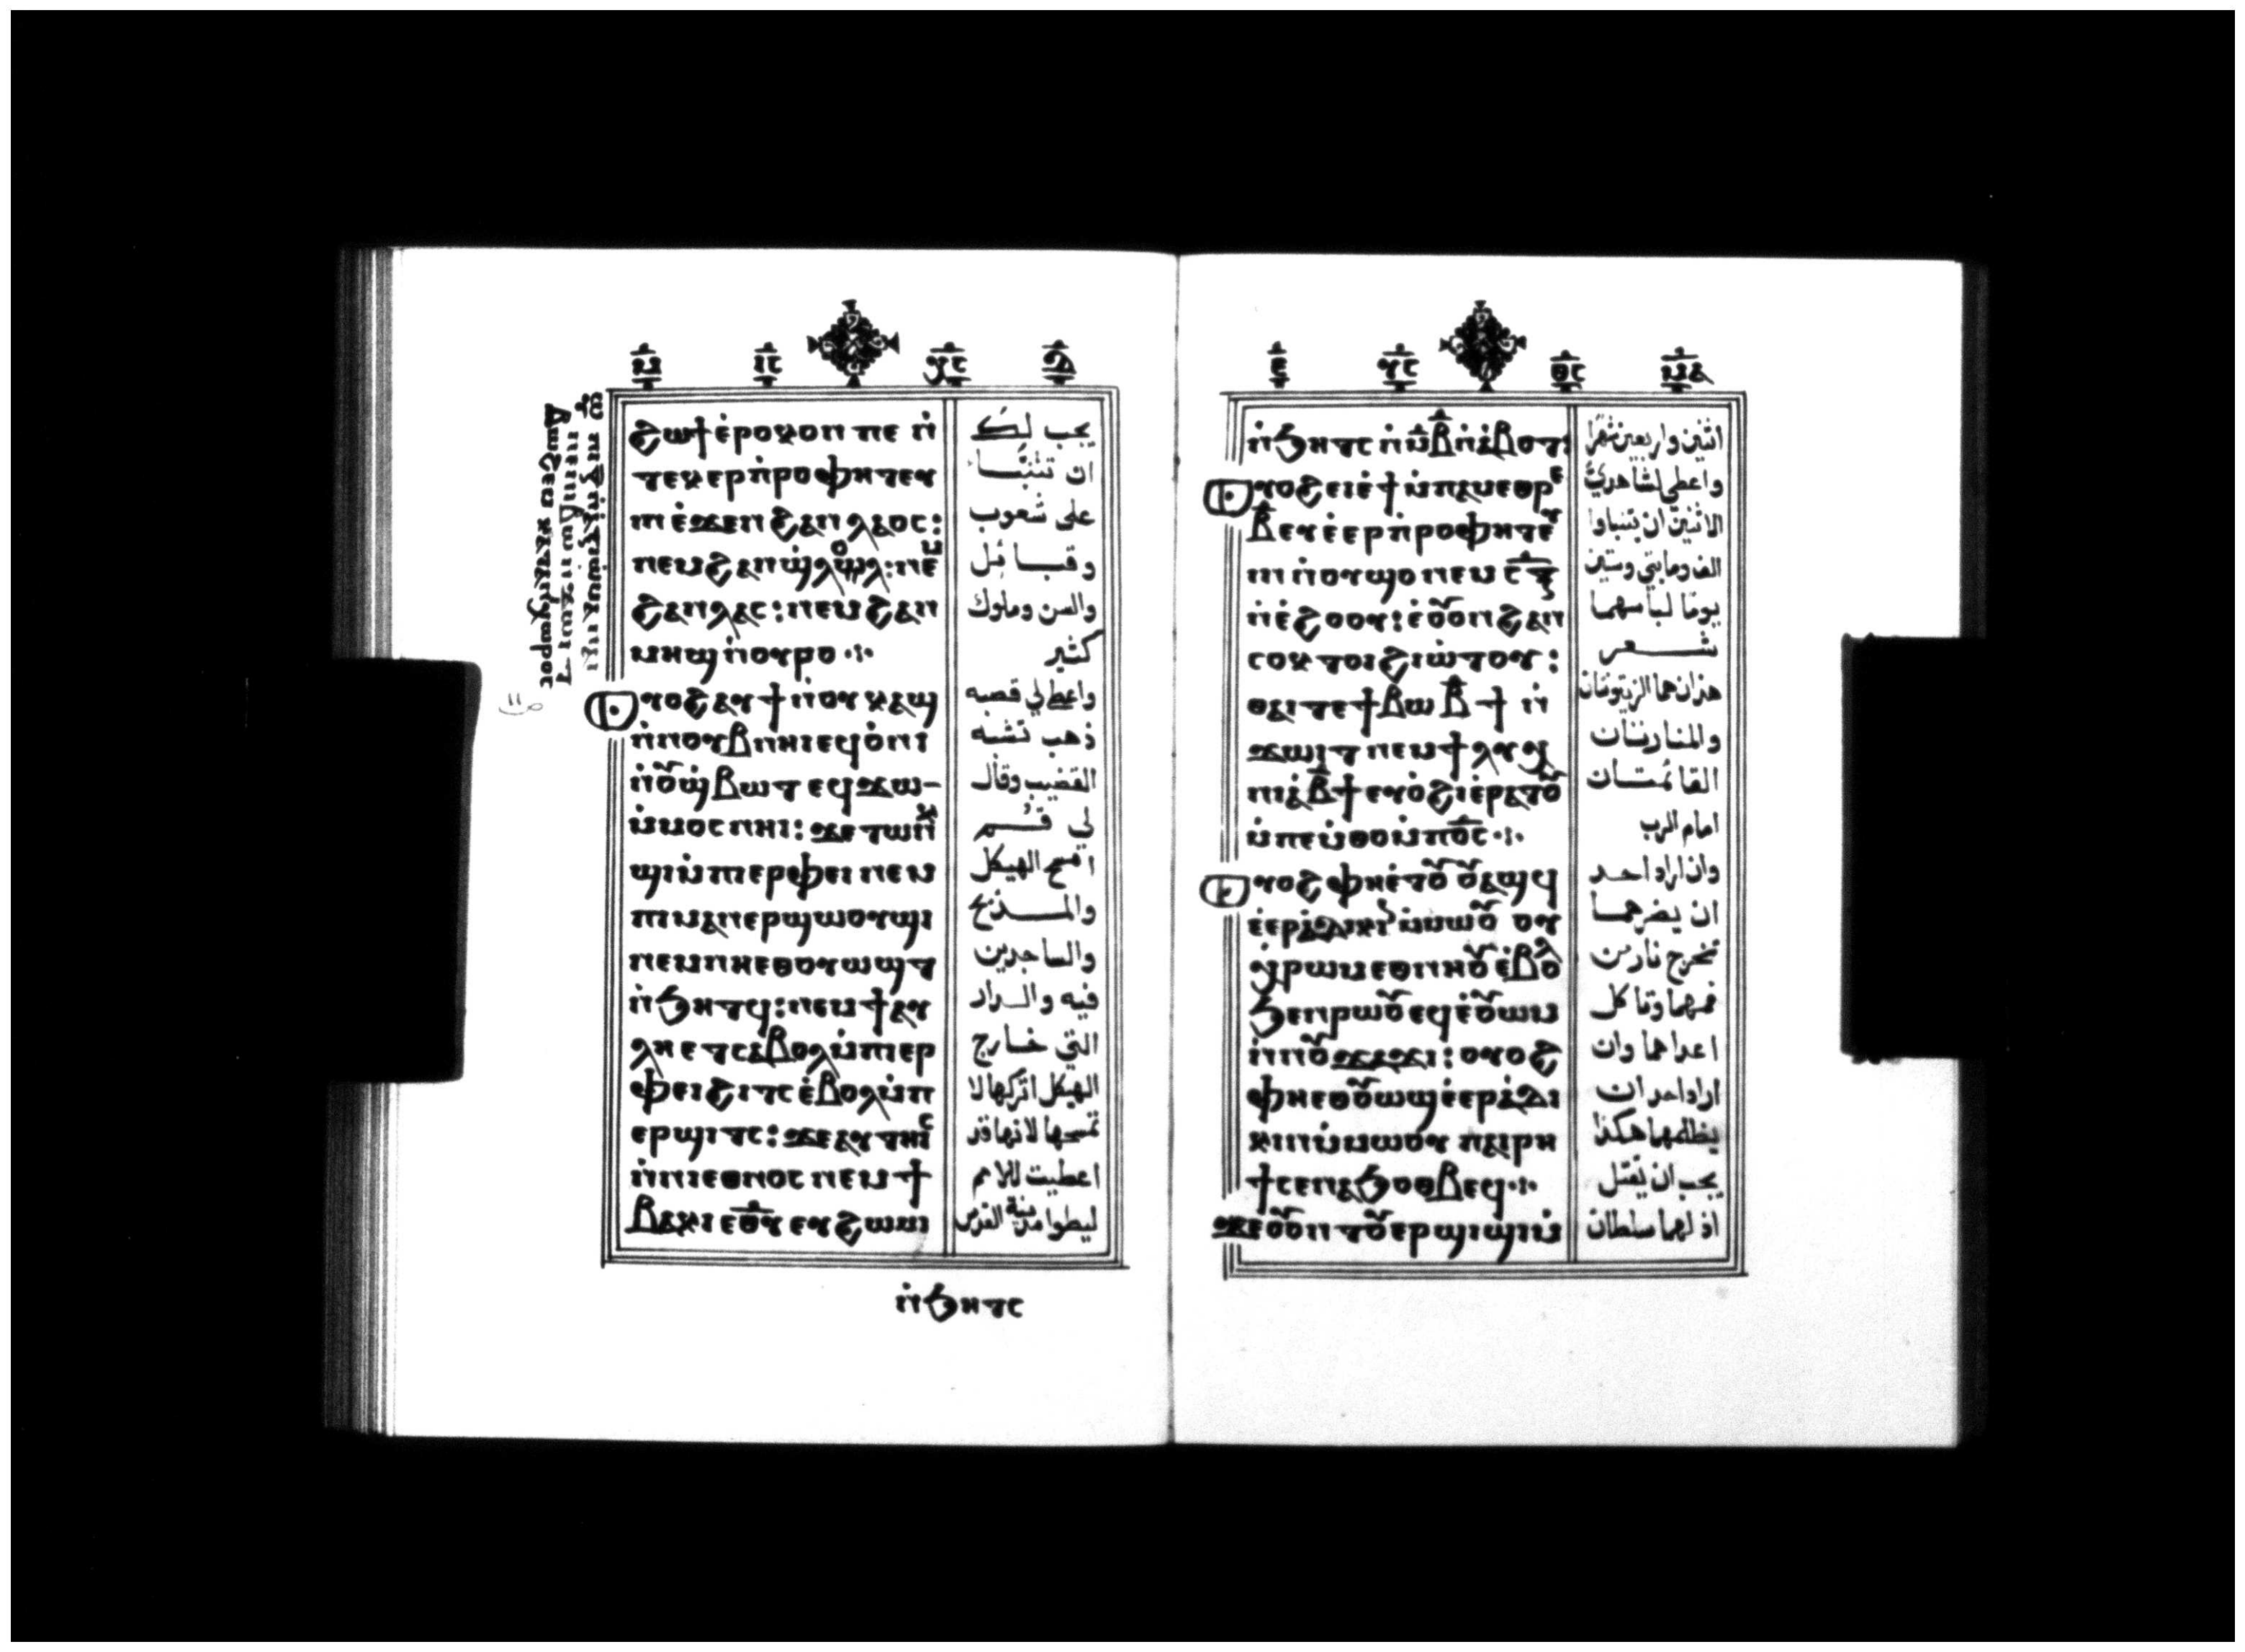 ϩⲱϯ ⲉ̇ⲣⲟⲕⲟⲡ ⲡⲉ ⲛ̇
ⲧⲉⲕⲉⲣⲡ̇ⲣⲟⲫⲏⲧⲉⲩ
ⲓⲛ ⲉ̇ϫⲉⲛ ϩⲁⲛⲗⲁⲟⲥ:
ⲛⲉⲙ ϩⲁⲛϣ̇ⲗⲟⲗ: ⲛⲉⲙ
ϩⲁⲛⲗⲁⲥ: ⲛⲉⲙ ϩⲁⲛ
ⲙⲏϣ ⲛ̇ⲟⲩⲣⲟ ⁘
ⲟⲩⲟϩ ⲁⲩϯ ⲛⲟⲩⲕⲁϣ
ⲛ̇ⲛⲟⲩⲃ ⲛⲏⲓ ⲉϥⲟ̇ⲛⲓ
ⲛ̇ⲟⲩϣ̇ⲃⲱⲧ ⲉϥϫⲱ
ⲙ̇ⲙⲟⲥ ⲛⲏⲓ: ϫⲉ ⲧⲱⲛⲕ
ϣⲓ ⲙ̇ⲡⲓⲉⲣⲫⲉⲓ ⲛⲉⲙ
ⲡⲓⲙⲁⲛⲉⲣϣⲱⲟⲩϣⲓ
ⲛⲉⲙ ⲛⲏⲉⲑⲟⲩⲱϣⲧ
ⲛ̇ϧⲏⲧϥ: ⲛⲉⲙ ϯⲁⲩ
ⲗⲏ ⲉⲧⲥⲁⲃⲟⲗ ⲙ̇ⲡⲓⲉⲣ
ⲫⲉⲓ ϩⲓⲧⲥ ⲉ̇ⲃⲟⲗ ⲙ̇ⲡ
ⲉⲣϣⲓⲧⲥ: ϫⲉ ⲁⲩⲧⲏⲓⲥ
ⲛ̇ⲛⲓⲉⲑⲛⲟⲥ ⲛⲉⲙ ϯ
ⲃⲁⲕⲓ ⲉⲑⲩ ⲉⲩϩⲱⲙⲓ
ⲛ̇ϧⲏⲧⲥ
يجب لك
ان تتنبا
على شعوب
وقبائل
والسن وملوك
كثير
واعطي لي قصبه
ذهب تشبه
القضيب وقال
لي قم
امسح الهيكل
والمذبح
والساجدين
فيه والدار
التي خارج
الهيكل اتركها لا
تمسحها لانها قد
اعطيت للامم
ليطوا مدينة القدس
ⲛ̇ϧⲏⲧⲥ ⲛ̇ⲙⲃ ⲛ̇ⲁ̇ⲃⲟⲧ:
ⲟⲩⲟϩ ⲉⲓⲉ̇ϯ ⲙ̇ⲡⲁⲙⲉⲑⲣⲉ
ⲃ ⲉⲩⲉ̇ⲉⲣⲡ̇ⲣⲟⲫⲏⲧⲉⲩ
ⲓⲛ ⲛ̇ⲟⲩϣⲟ ⲛⲉⲙ ⲥⲝ
ⲛ̇ⲉ̇ϩⲟⲟⲩ: ⲉ̇ⲟⲩⲟⲛ ϩⲁⲛ
ⲥⲟⲕ ⲧⲟⲓ ϩⲓⲱ̇ⲧⲟⲩ:
ⲑⲁⲓ ⲧⲉ ϯⲃⲱ ⲃ̄ϯ ⲛ̇
ϫⲱⲓⲧ ⲛⲉⲙ ϯⲗⲩⲭ
ⲛⲓⲁ̇ ⲃ̄ϯ ⲉⲩⲟ̇ϩⲓ ⲉ̇ⲣⲁⲧⲟⲩ
ⲙ̇ⲡⲉⲙ̇ⲑⲟ ⲙ̇ⲡⲟ̅ⲥ̅ ⁘
ⲟⲩⲟϩ ⲫⲏⲉ̇ⲧⲟⲩ ⲟⲩⲁϣϥ
ⲉ̇ⲉⲣⲁ̇ⲇⲓⲕⲓⲛ ⲙ̇ⲙⲱⲟⲩ ⲟⲩ
ⲭ̇ⲣⲱⲙ ⲉⲑⲛⲏⲟⲩ ⲉ̇ⲃⲟⲗ
ϧⲉⲛ ⲣⲱⲟⲩ ⲉϥⲉ̇ⲟⲩⲱⲙ
ⲛ̇ⲛⲟⲩϫⲁϫⲓ: ⲟⲩⲟϩ
ⲫⲏⲉⲑⲟⲩⲱϣ ⲉ̇ⲉⲣⲁ̇ⲇⲓ
ⲕⲓⲛ ⲙ̇ⲙⲱⲟⲩ ⲡⲁⲓⲣⲏ
ϯ ⲥⲉⲛⲁϧⲟⲑⲃⲉϥ ⁘
ϫⲉ ⲟⲩⲟⲛⲧⲟⲩ ⲉⲣϣⲓϣⲓ ⲙ̇
اثنين واربعين شهرا
واعطي لشاهدي
الاثنين ان يتنباوا
الف ومايتي وستين
يوما لباسهما
شعر
هذان هما الزيتونتان
والمنارتان
القائمتان
امام الرب
وان اراد احد
ان يضرهما
تخرج نار من
فمهما وتاكل
اعداهما وان
اراد احد ان
يظلمهما هكذا
يجب ان يقتل
اذ لهما سلطان